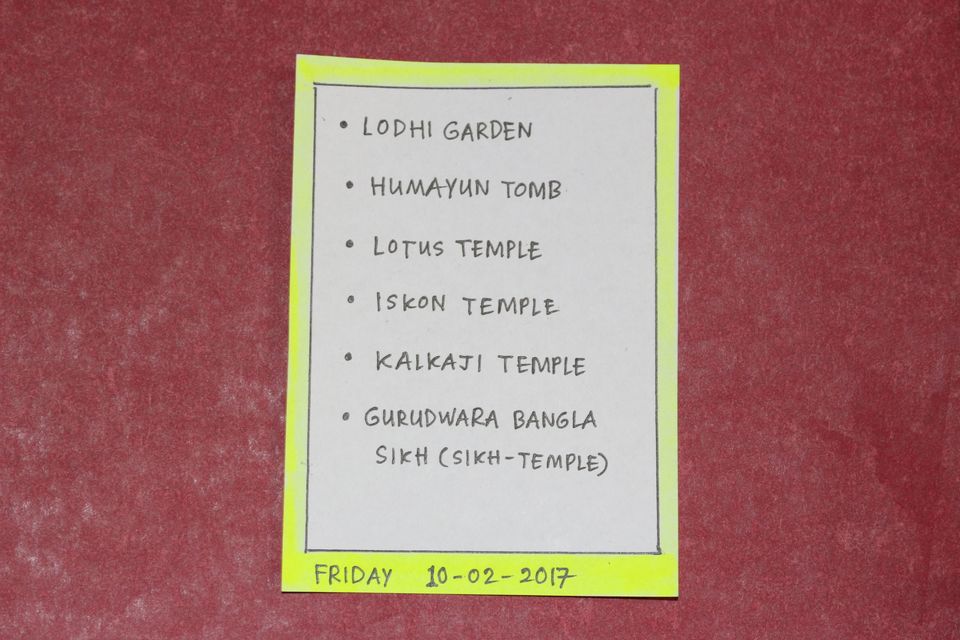 • LODHI GARDEN
• HUMAYUN TOMB
• LOTUS TEMPLE
• ISKON TEMPLE
• KALKAJI TEMPLE
• GURUDWARA BANGLA
SIKH (SIKH-TEMPLE)
FRIDAY 10-02-2017